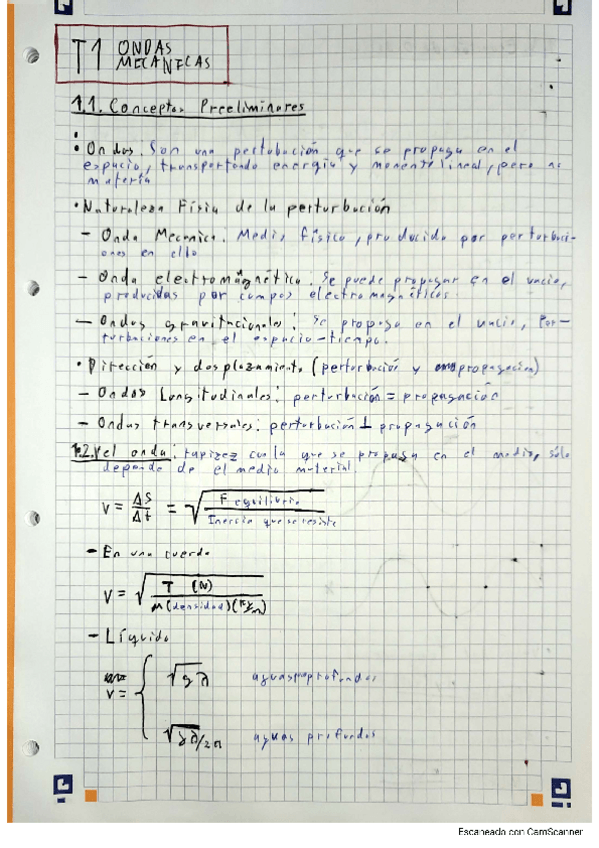 T1 ONDAS
MECANICAS
1.1. Conceptos Preeliminares
• Ondas: Son una pertubación que se propaga en el
espacio, transportando energía y momento lineal, pero no
materia
• Naturaleza Física de la perturbación
- Onda Mecanica: Medio físico, producido por perturbaci-
ones en ello
- Onda electromágnética: Se puede propagar en el vacio,
producidas por campos electromagnéticos.
- Ondas gravitacionales: Se propaga en el vacio, Per-
turbaciones en el espacio-tiempo.
• Dirección y desplazamiento (perturbación y propagación)
- Ondas Longitudinales: perturbación = propagación
- Ondas transversales: perturbación ⊥ propagación
1.2. Vel onda: rapidez con la que se propaga en el medio, sólo
depende de el medio material.
V = ΔS/Δt = √(F equilibrio / Inercia que se resiste)
- En una cuerda
V = √(T (N) / μ (densidad) (kg/m))
- Líquido
V = { √g λ aguas profundas
√gλ/2π aguas profundas